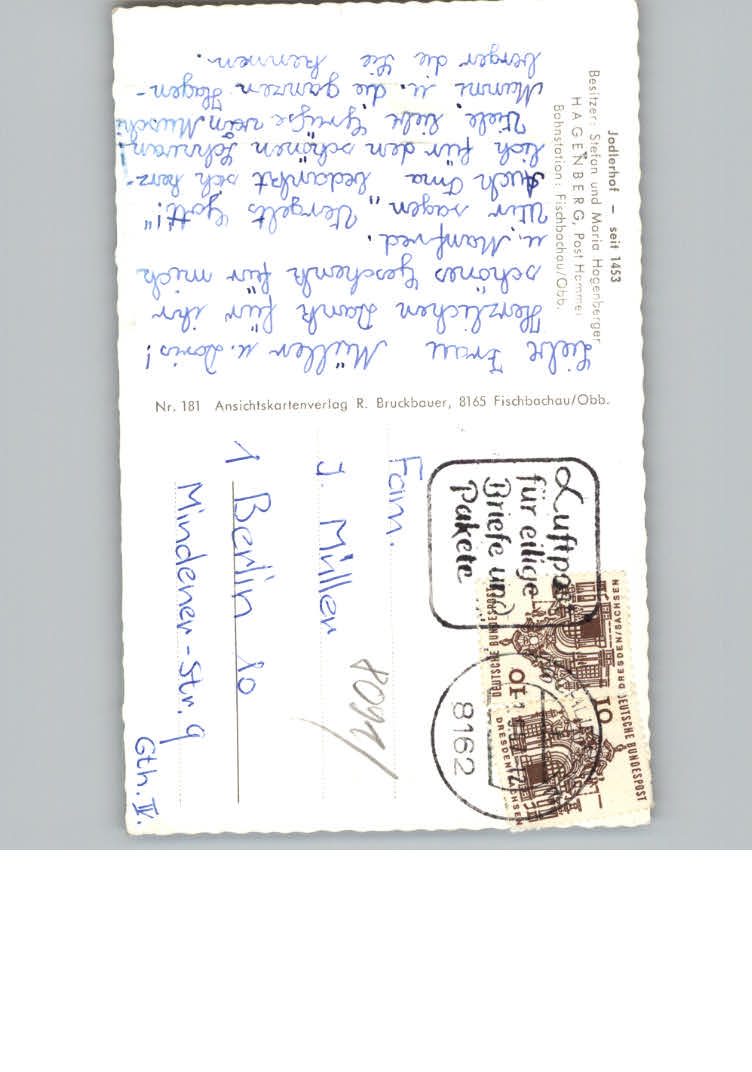 Jodlerhof – seit 1453
Besitzer: Stefan und Maria Hagenberger
HAGENBERG, Post Hammer
Bahnstation: Fischbachau/Obb.
Liebe Frau Müller u. Doris!
Herzlichen Dank für ihr
schönes Geschenk für mich
u. Manfred.
Wir sagen „Vergelts Gott!"
Auch Oma bedankt sich herz-
lich für den schönen Schwan!
Viele liebe Grüße von Muschi
Mammi u. die ganzen Hagen-
berger die Sie kennen.
Nr. 181 Ansichtskartenverlag R. Bruckbauer, 8165 Fischbachau/Obb.
Luftpost
für eilige
Briefe und
Pakete
8162
DEUTSCHE BUNDESPOST
10
DRESDEN/SACHSEN
DEUTSCHE BUNDESPOST
10
DRESDEN/SACHSEN
Fam.
J. Müller
1 Berlin 10
Mindener-Str. 9
Gth. IV.